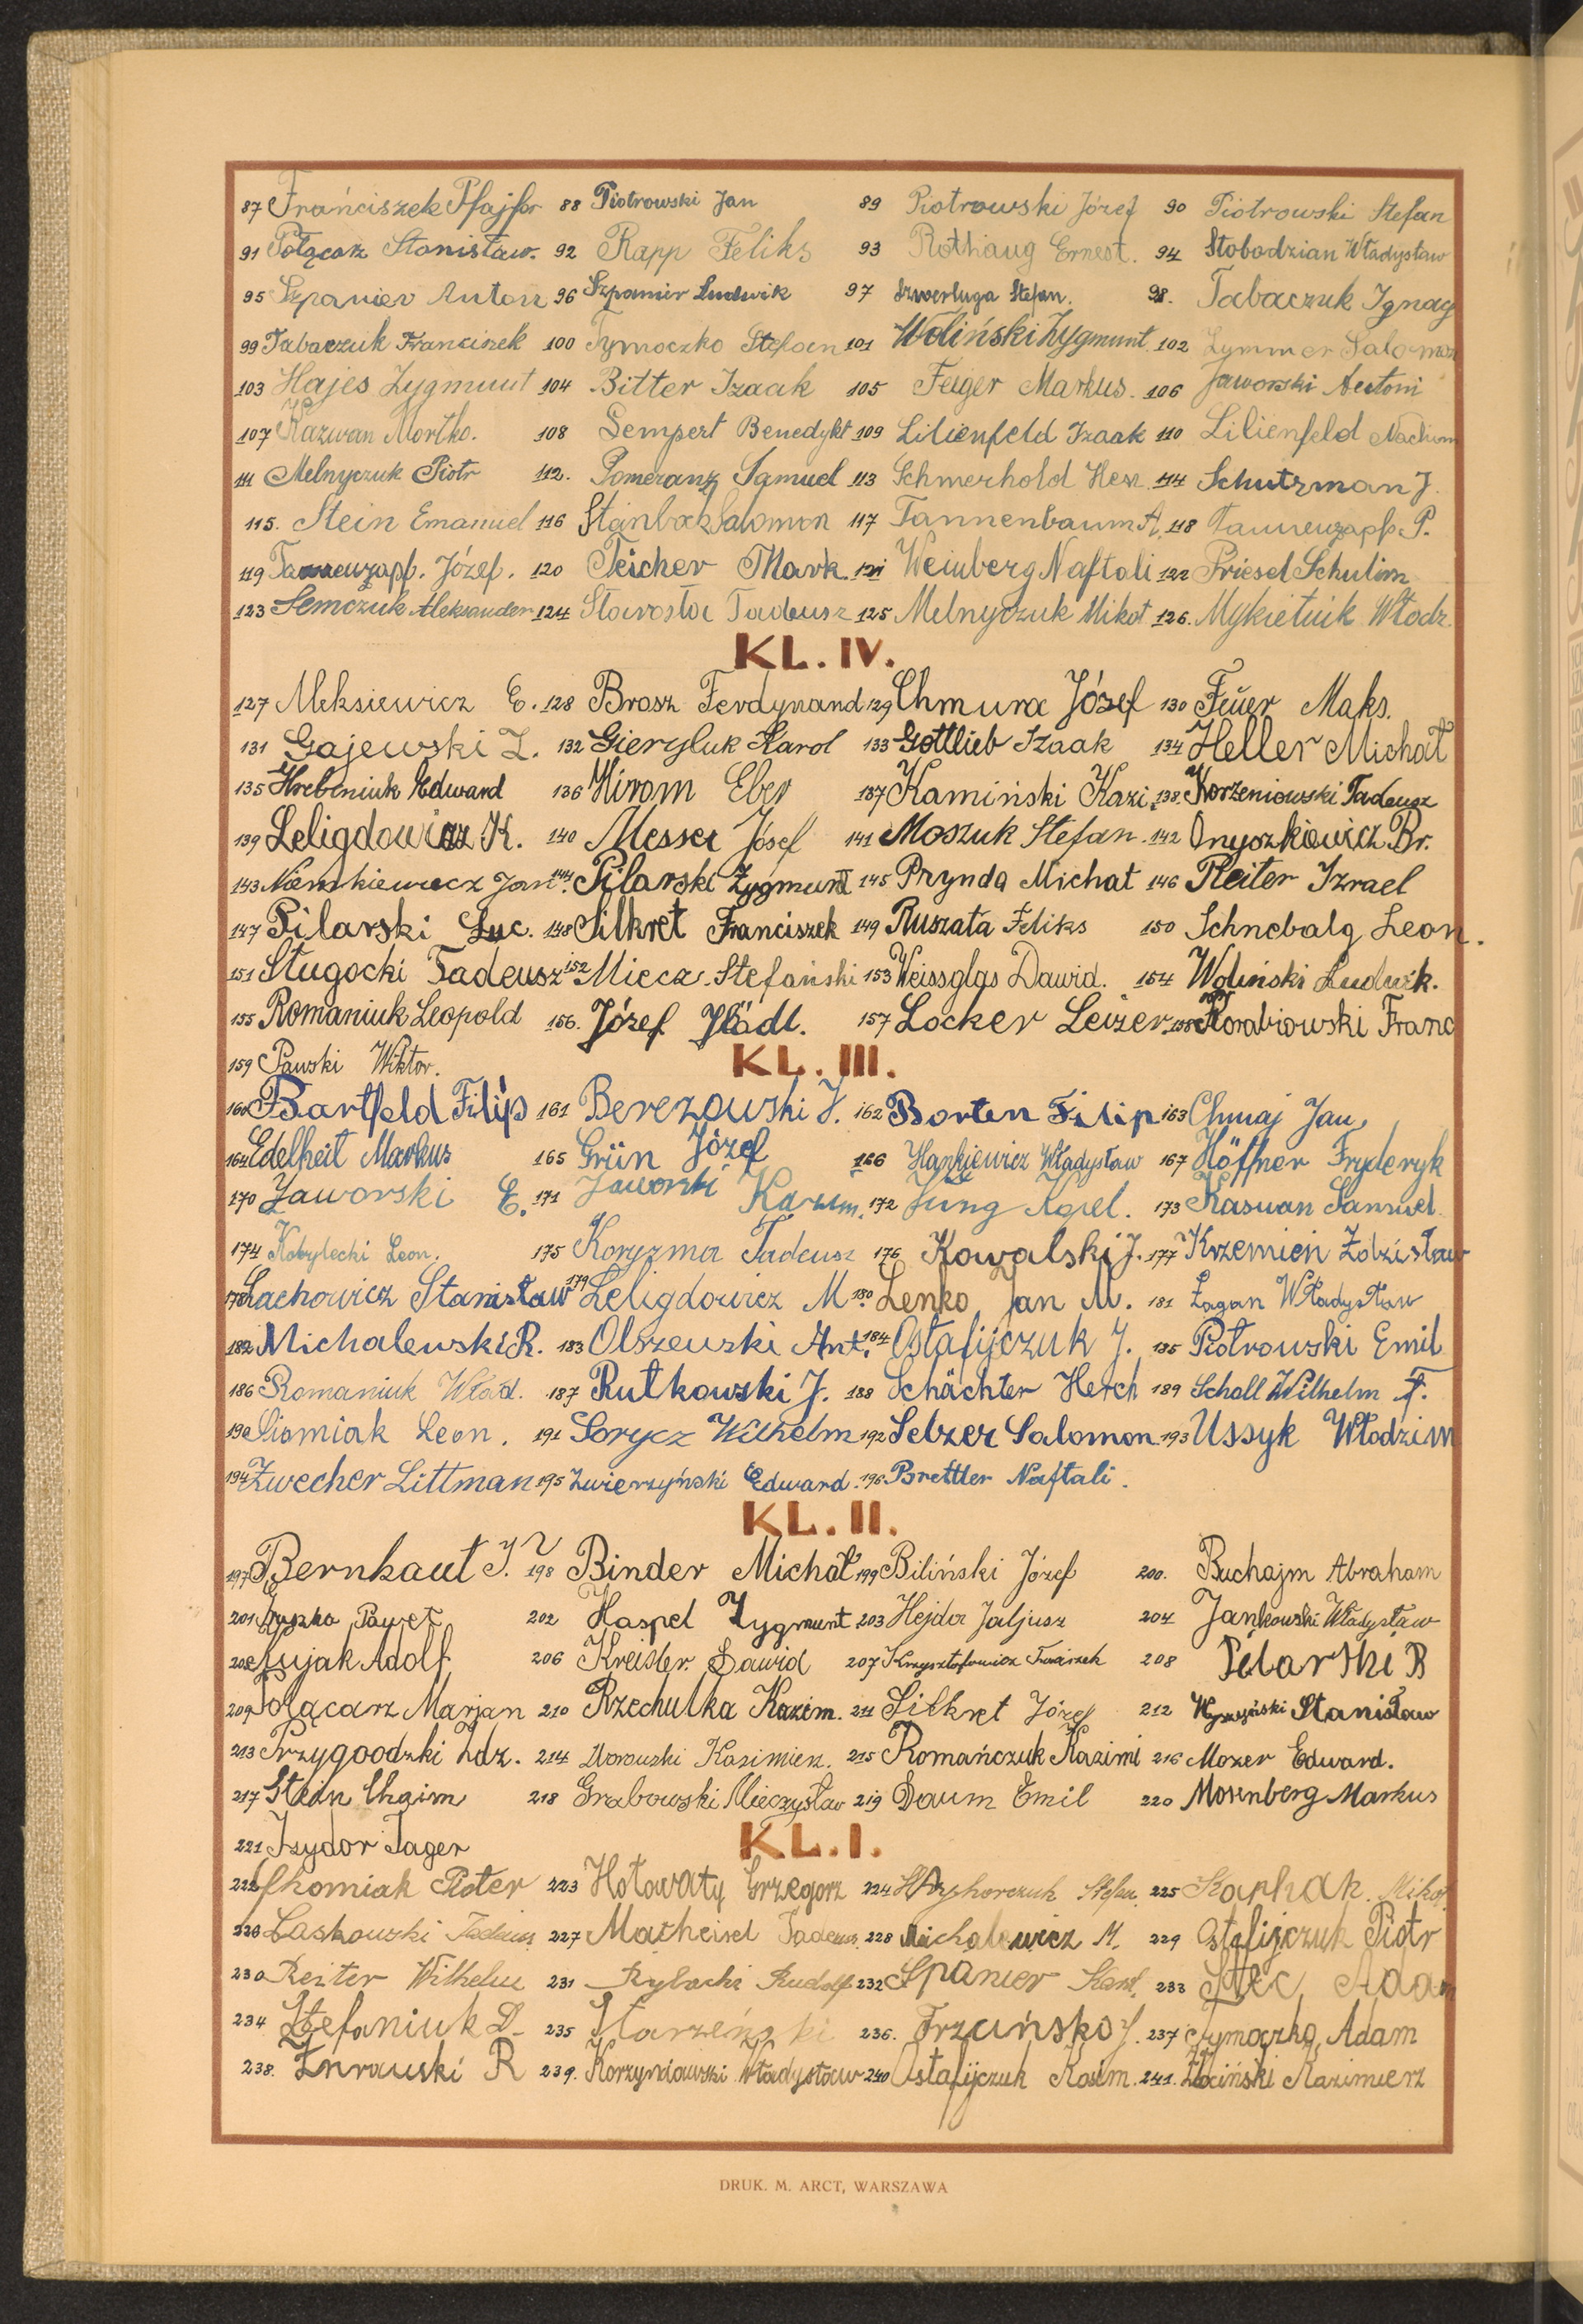 87 Frańciszek Pfajfer 88 Piotrowski Jan 89 Piotrowski Józef 90 Piotrowski Stefan
91 Połącarz Stanisław. 92 Rapp Feliks 93 Rothaug Ernest. 94 Słobodzian Władysław
95 Szpanier Anton 96 Szpanier Ludwik 97 Szwerluga Stefan. 98. Tabaczuk Ignacy
99 Tabaczuk Franciszek 100 Tymoczko Stefan 101 Woliński Zygmunt 102 Zymmer Salomon
103 Hajes Zygmunt 104 Bitter Izaak 105 Feiger Markus. 106 Jaworski Antoni
107 Kazwan Mortko. 108 Sempert Benedykt 109 Lilienfeld Izaak 110 Lilienfeld Nachum
111 Melnyczuk Piotr 112. Pomeranz Samuel 113 Schmerhold Hesz. 114 Schutzman J.
115. Stein Emanuel 116 Stanbock Salomon 117 Tannenbaum A. 118 Tannenzapf P.
119 Tannenzapf. Józef. 120 Teicher Mark. 121 Weinberg Naftali 122 Priesel Schulim
123 Semczuk Aleksander 124 Starosta Tadeusz 125 Melnyczuk Mikoł 126. Mykietiuk Włodz.
KL. IV.
127 Aleksiewicz E. 128 Brosz Ferdynand 129 Chmura Józef 130 Feuer Maks.
131 Gajewski Z. 132 Gieryluk Karol 133 Gottlieb Izaak 134 Heller Michał
135 Hrebeniuk Edward 136 Hirom Eber 137 Kamiński Kazi. 138. Korzeniowski Tadeusz
139 Leligdowicz K. 140 Messer Józef 141 Moszuk Stefan. 142 Onyszkiewicz Br.
143 Niemkiewicz Jan 144. Pilarski Zygmunt 145 Prynda Michał 146 Reiter Izrael
147 Pilarski Luc. 148 Silkret Franciszek 149 Ruszała Feliks 150 Schnebalg Leon.
151 Sługocki Tadeusz 152 Miecz. Stefański 153 Weissglas Dawid. 154 Woliński Ludwik.
155 Romaniuk Leopold 156. Józef Hädl. 157 Locker Leizer 158 Korabiowski Franc
159 Pawski Wiktor.
KL. III.
160 Bartfeld Filip 161 Berezowski J. 162 Borten Filip 163 Chmaj Jan,
164 Edelheit Markus 165 Grün Józef 166 Hankiewicz Władysław 167 Höffner Fryderyk
170 Jaworski E. 171 Jaworski Kazim. 172 Jung Karel. 173 Kaswan Samuel.
174 Kobylecki Leon. 175 Koryzma Tadeusz 176 Kowalski J. 177 Krzemień Zdzisław
178 Lachowicz Stanisław 179 Leligdowicz M. 180 Lenko Jan M. 181 Łagan Władysław
182 Michalewski R. 183 Olszewski Ant. 184 Ostafijczuk J. 185 Piotrowski Emil
186 Romaniuk Wład. 187 Rutkowski J. 188 Schächter Herch 189 Scholl Wilhelm F.
190 Siomiak Leon. 191 Sorycz Wilhelm 192 Selzer Salomon 193 Ussyk Włodzim
194 Zwecher Littman 195 Zwierzyński Edward. 196 Brettler Naftali.
KL. II.
197 Bernhaut J. 198 Binder Michał 199 Biliński Józef 200. Buchajm Abraham
201 Paweł 202 Haspel Zygmunt 203 Hejda Juljusz 204 Jankowski Władysław
205 Kujak Adolf 206 Kreisler. Dawid 207 Krzysztofowicz Franciszek 208 Pilarski B
209 Połącarz Marjan 210 Rzechułka Kazim. 211 Silkret Józef 212 Wyrzyński Stanisław
213 Przygodzki Zdz. 214 Worowski Kazimierz. 215 Romańczuk Kazimi 216 Mozer Edward.
217 Stein Chaim 218 Grabowski Mieczysław 219 Daum Emil 220 Mosenberg Markus
221 Izydor Jager
KL. I.
222 Chomiak Pioter 223 Hołowaty Grzegorz 224 Hryhorczuk Stefan 225 Kaphak Mikoł.
226 Laskowski Tadeusz 227 Matheisel Tadeusz. 228 Michalewicz M. 229 Ostafijczuk Piotr
230 Reiter Wilhelm 231 Rybacki Rudolf 232 Spanier Karol, 233 Stec Adam
234 Stefaniuk D. 235 Starzeński 236. Trzcińsko J. 237 Tymoczko Adam
238. Żurawski R 239. Korzyniowski Władysław 240 Ostafijczuk Kazim. 241. Złociński Kazimierz
DRUK. M. ARCT, WARSZAWA